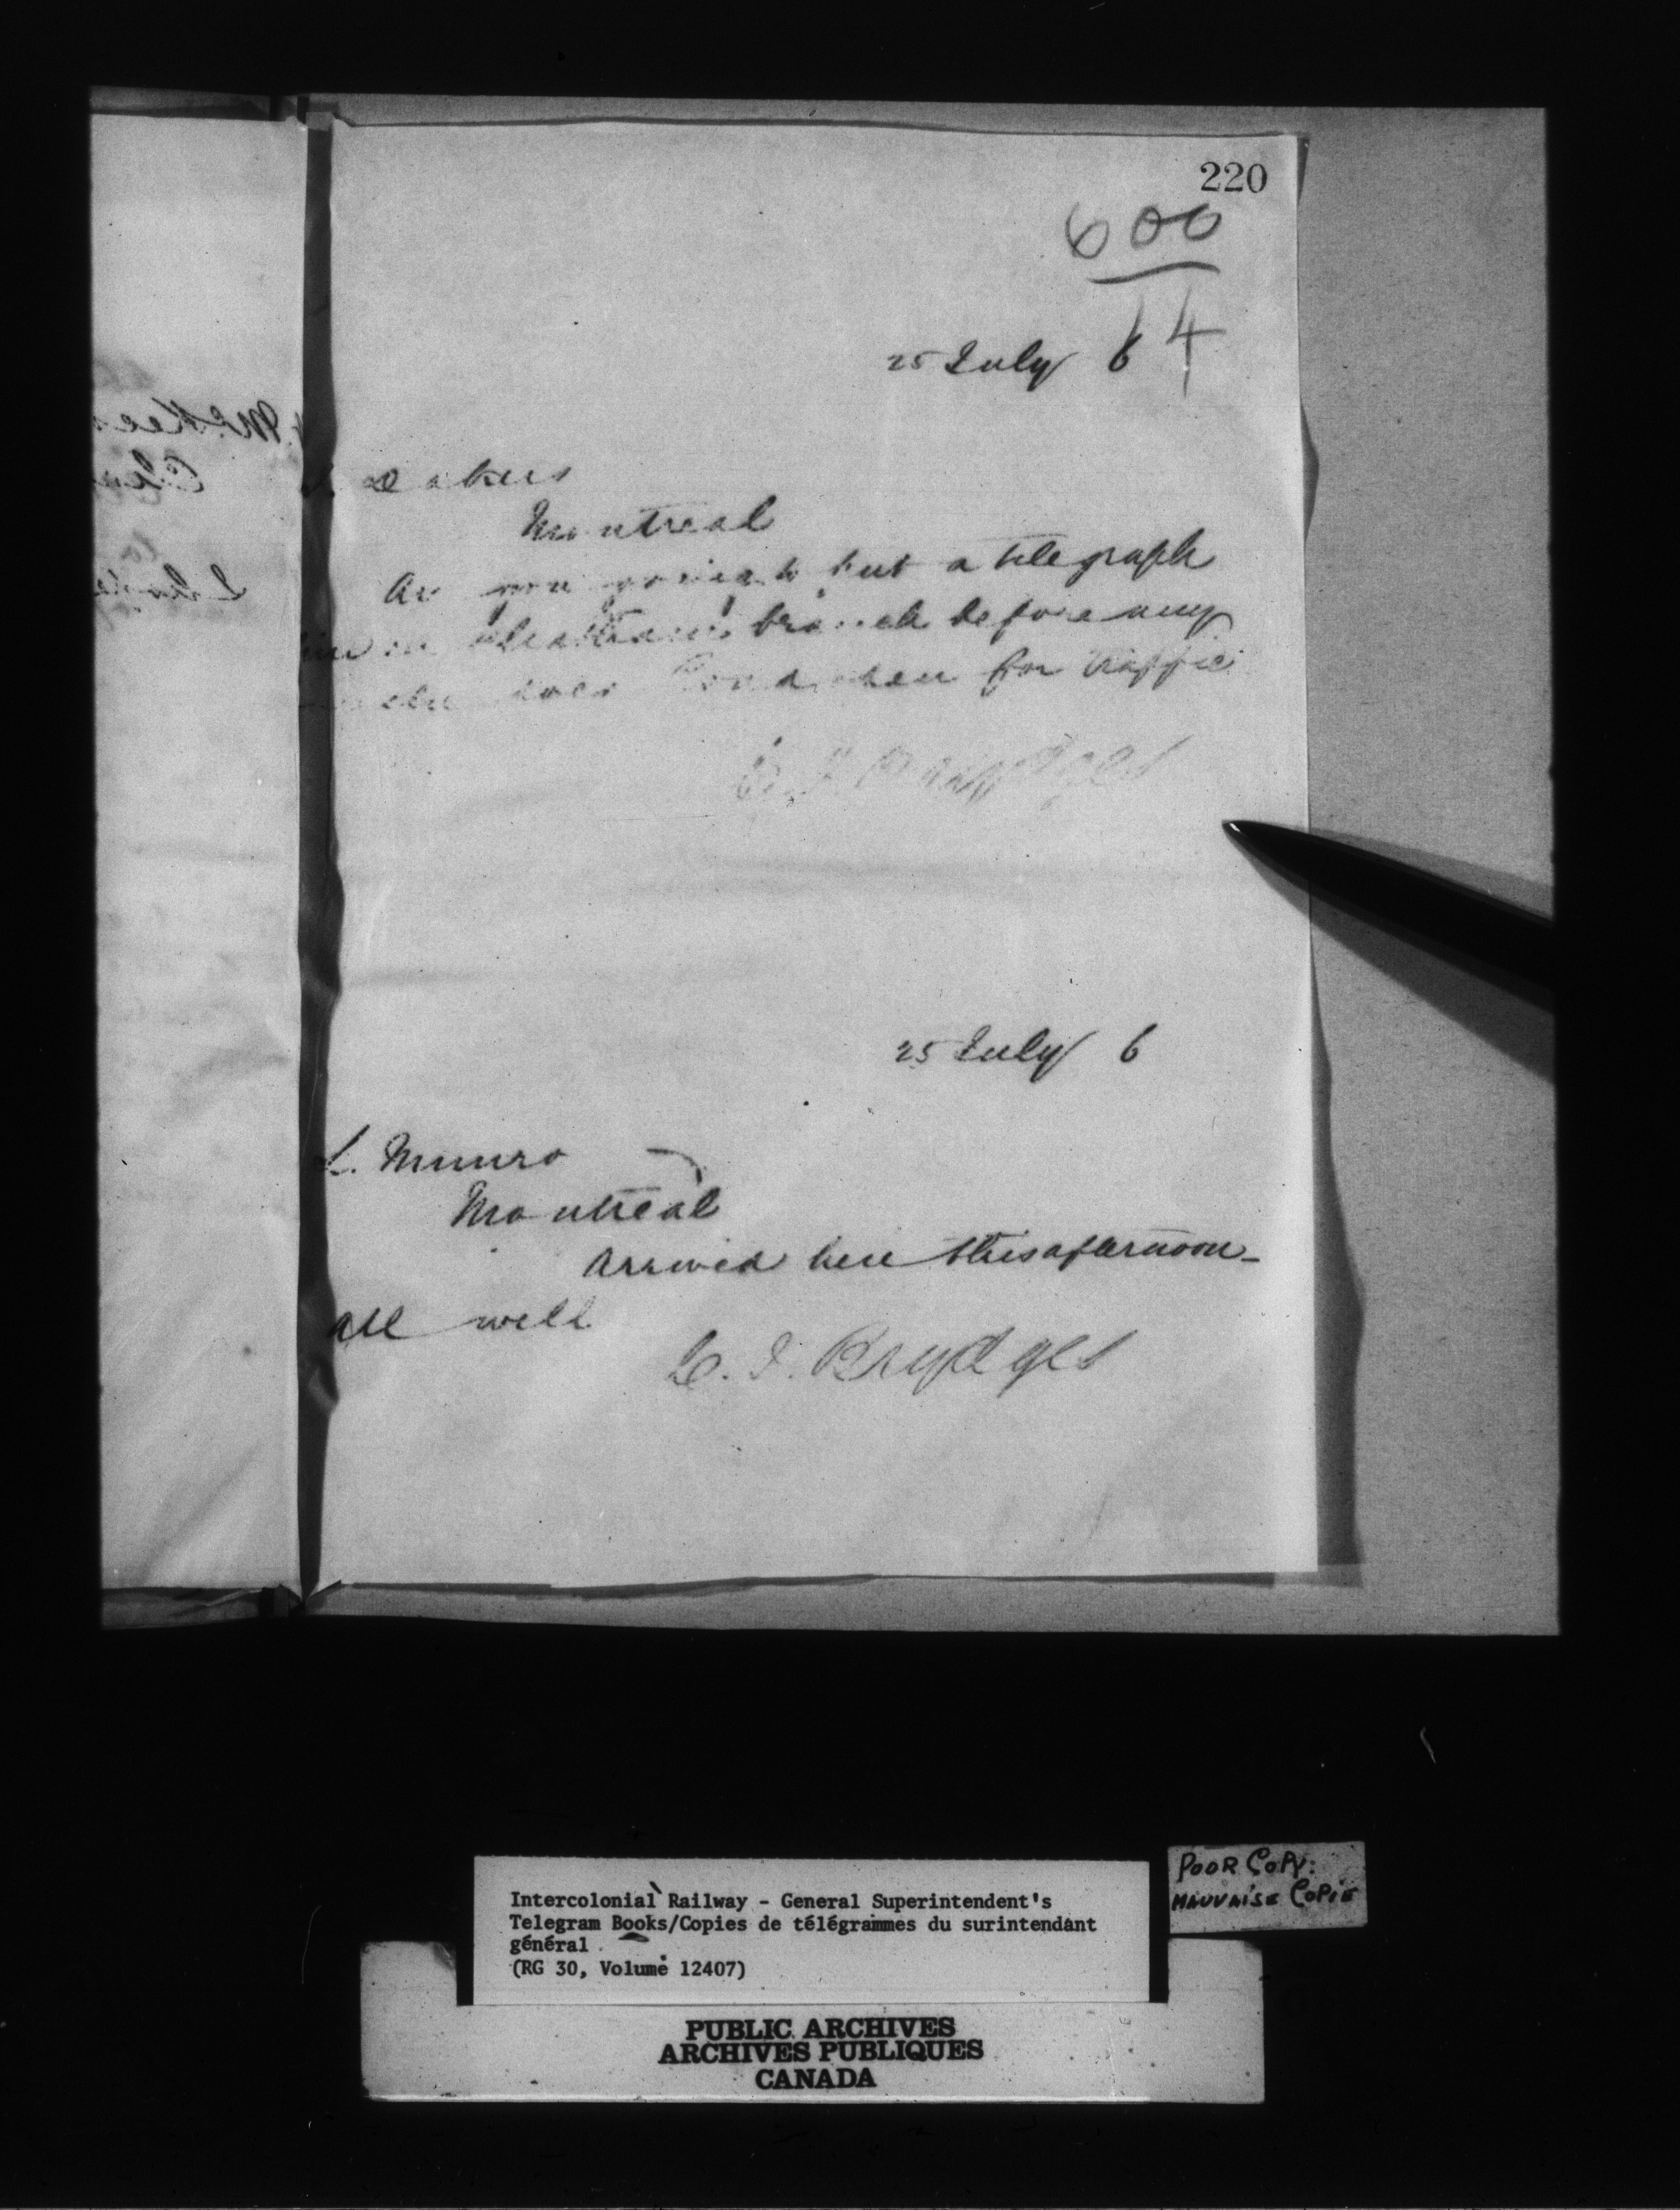 220
600
14
25 July 6
Montreal
Are you going to put a telegraph
on Chatham branch before any
for traffic
C. J. Brydges
25 July 6
L. Munro
Montreal
Arrived here this afternoon_
all well
C. J. Brydges
POOR COPY:
MAUVAISE COPIE
Intercolonial Railway - General Superintendent's
Telegram Books/Copies de télégrammes du surintendant
général
(RG 30, Volume 12407)
PUBLIC ARCHIVES
ARCHIVES PUBLIQUES
CANADA